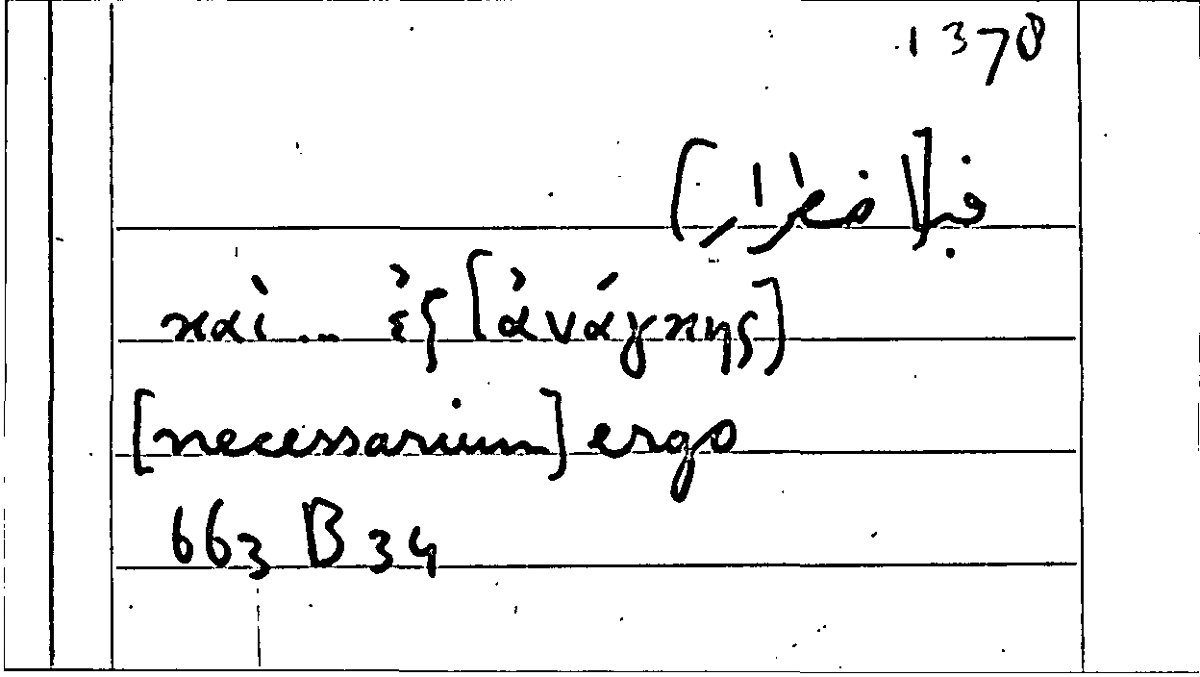 1378
فب[اضطرار]
καὶ... ἐξ [ἀνάγκης]
[necessarium] ergo
663 B 34